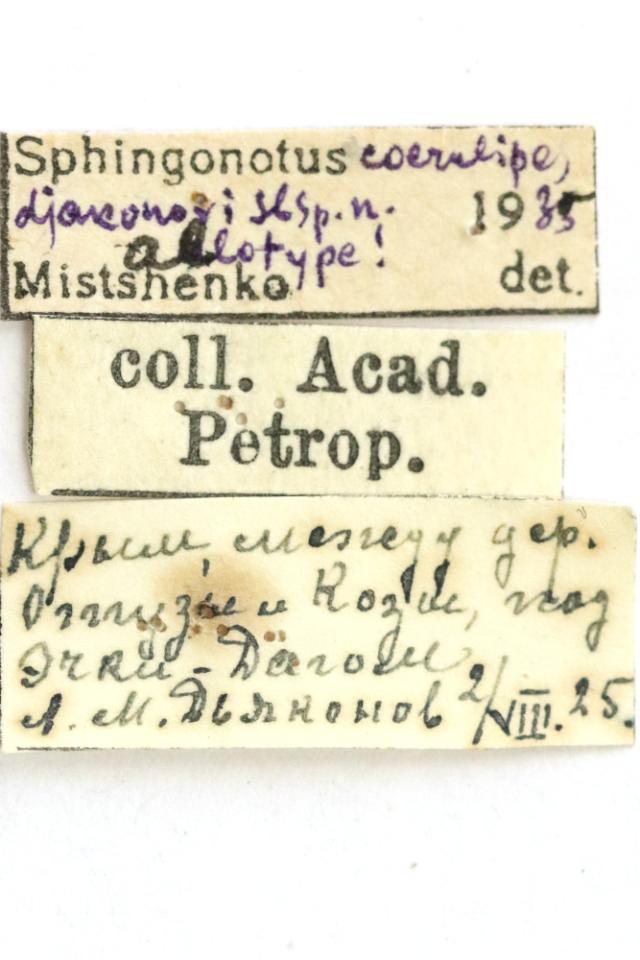 Sphingonotus coerulipes
djakonovi sbsp. n. 1935
allotype!
Mistshenko det.
coll. Acad.
Petrop.
Крым, между дер.
Отузы и Козы, под
Эчки-Дагом
А. М. Дьяконов 2/VIII. 25.